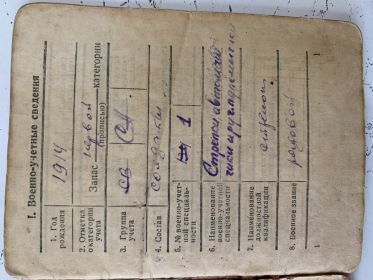 I. Военно-учетные сведения
1. Год рождения
1914
2. Отметка о категории учета
Запас первой категории
(прописью)
3. Группа учета
СА
4. Состав
солдатск
5. № военно-учетной специальности
1
6. Наименование военно-учетной специальности
Стрелки автоматчики
7. Наименование должностной квалификации
стрелок
8. Военное звание
рядовой
1